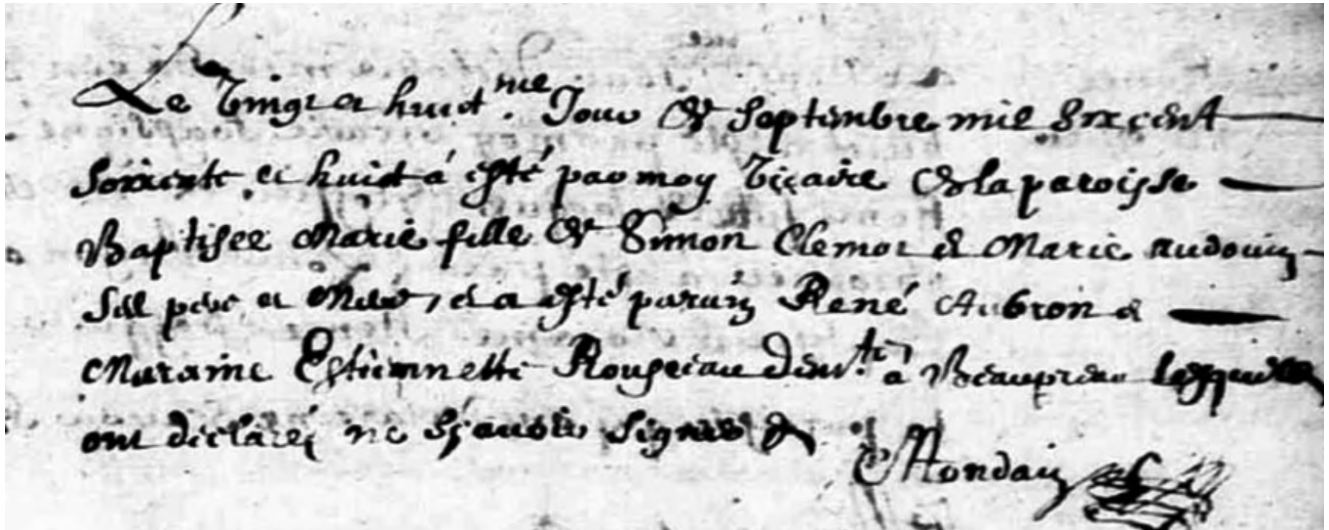 Le vingt et huict.me Jour de septembre mil six cent
soixente et huict à esté par moy vicaire de la paroisse
Baptisee Marie fille de Simon Clemot et Marie Audouin
ses pere et Mere, et a esté parain René Aubron et
Maraine Estiennette Rousseau demts à Beaupreau lesquels
ont déclaré ne sçavoir signer
Mondain